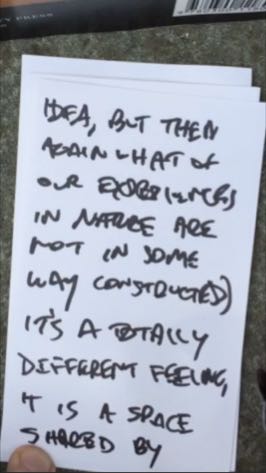 PRESS
IDEA, BUT THEN
AGAIN WHAT OF
OUR EXPERIENCES
IN NATURE ARE
NOT IN SOME
WAY CONSTRUCTED)
IT'S A TOTALLY
DIFFERENT FEELING,
IT IS A SPACE
SHARED BY